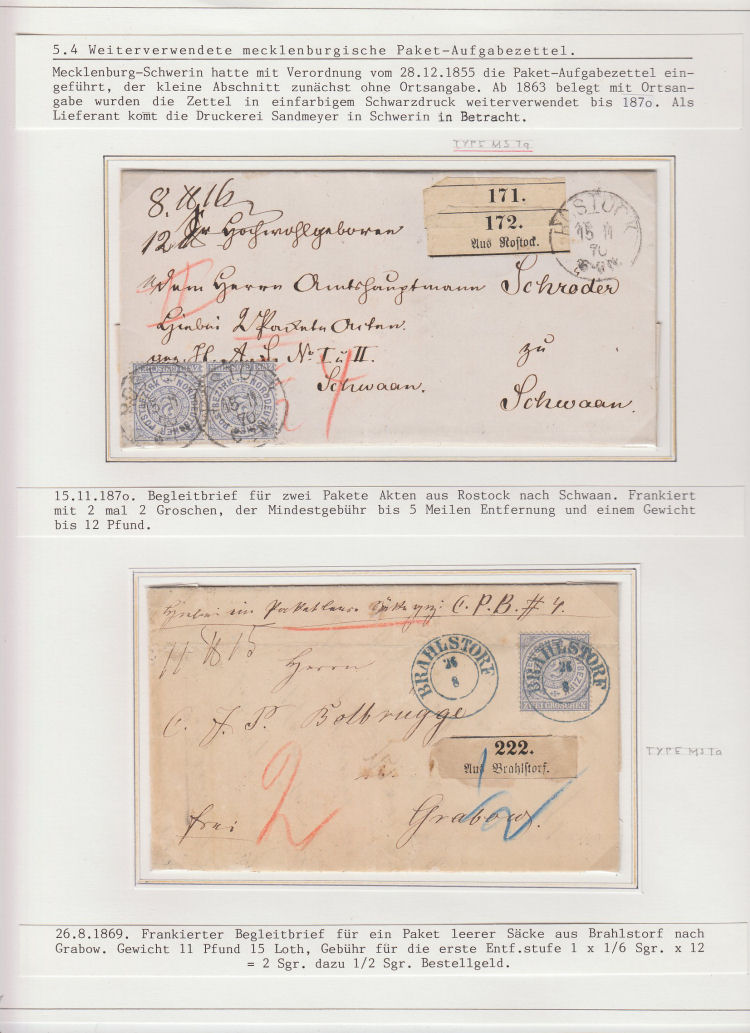 5.4 Weiterverwendete mecklenburgische Paket-Aufgabezettel.
Mecklenburg-Schwerin hatte mit Verordnung vom 28.12.1855 die Paket-Aufgabezettel ein-
geführt, der kleine Abschnitt zunächst ohne Ortsangabe. Ab 1863 belegt mit Ortsan-
gabe wurden die Zettel in einfarbigem Schwarzdruck weiterverwendet bis 187o. Als
Lieferant komt die Druckerei Sandmeyer in Schwerin in Betracht.
TYPE MS
171.
172.
Aus Rostock.
ROSTOCK
15 11
70
Hochwohlgeboren
dem Herrn Amtshauptmann Schröder
Hiebei 2 Packete Acten.
No I u II.
zu
Schwaan.
Schwaan.
4
15.11.187o. Begleitbrief für zwei Pakete Akten aus Rostock nach Schwaan. Frankiert
mit 2 mal 2 Groschen, der Mindestgebühr bis 5 Meilen Entfernung und einem Gewicht
bis 12 Pfund.
Hiebei ein Packet leere Säcke C. P. B. # 4.
BRAHLSTORF
26
8
BRAHLSTORF
26
8
ZWEI GROSCHEN
Herrn
C. J. P. Bolbrügge
222.
Aus Brahlstorf.
TYPE MS Ia
2
frei
Grabow.
26.8.1869. Frankierter Begleitbrief für ein Paket leerer Säcke aus Brahlstorf nach
Grabow. Gewicht 11 Pfund 15 Loth, Gebühr für die erste Entf.stufe 1 x 1/6 Sgr. x 12
= 2 Sgr. dazu 1/2 Sgr. Bestellgeld.